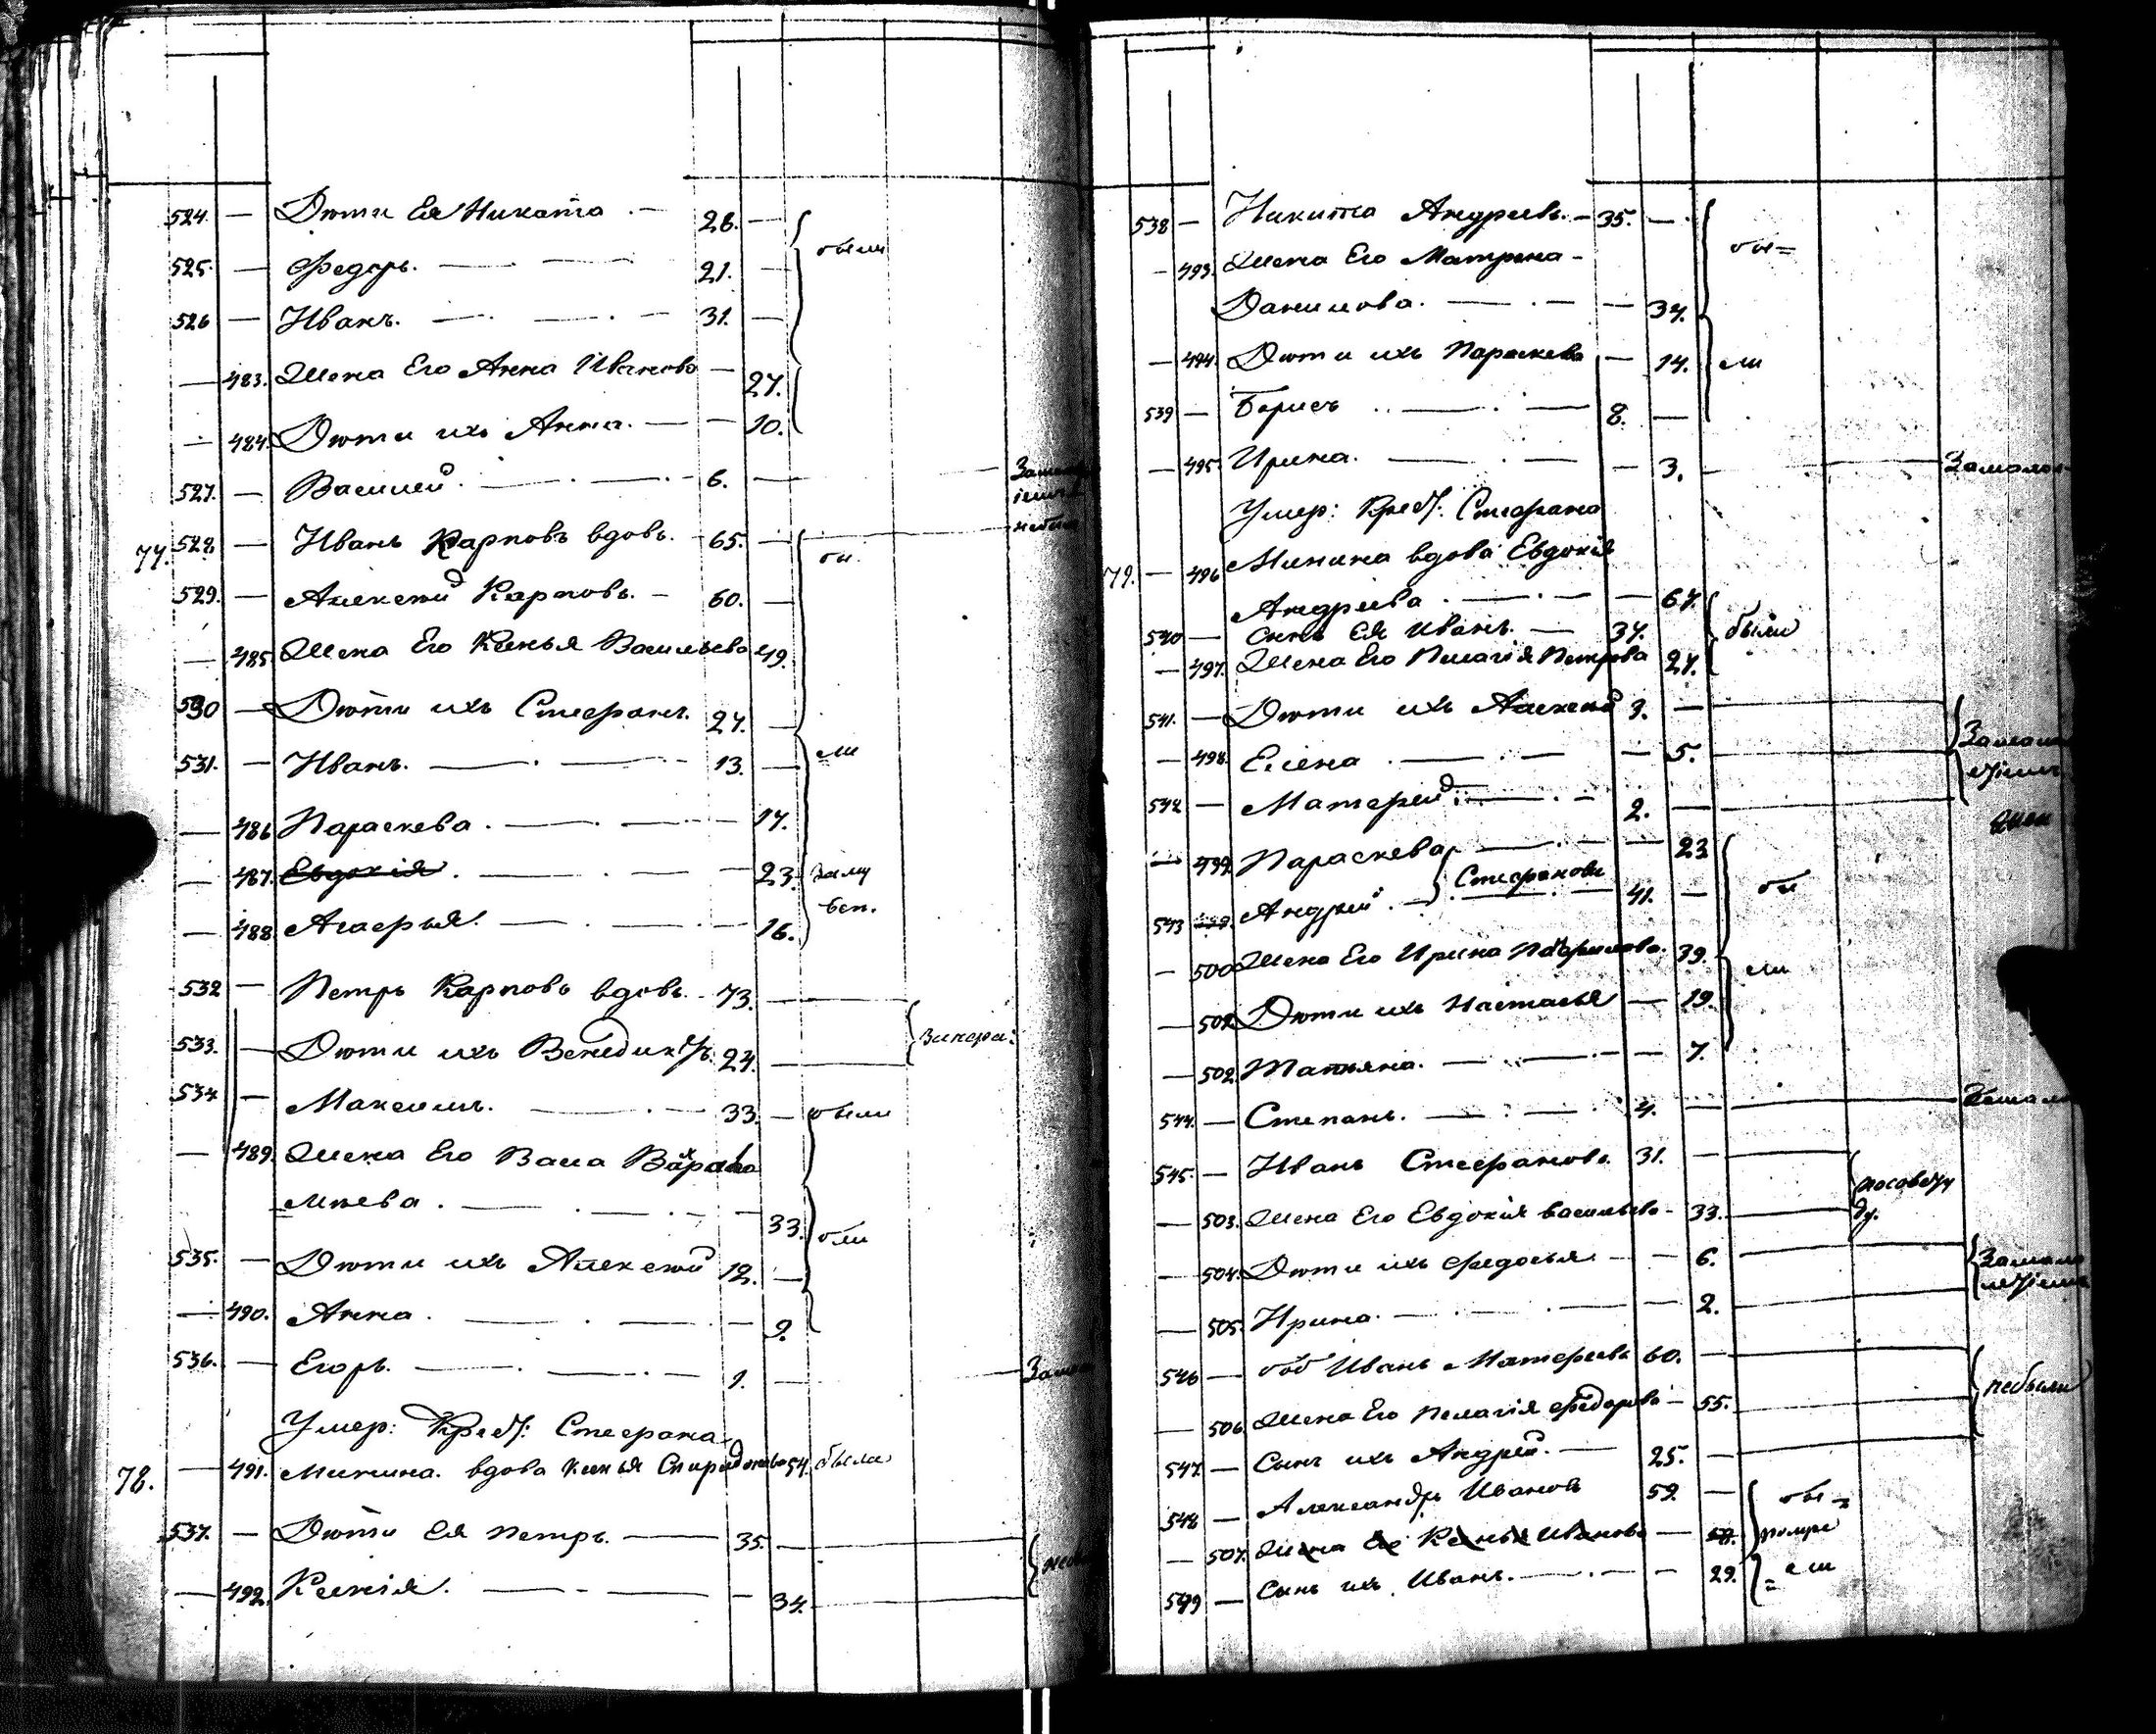 524. — Дѣти Ея Никита — 26. — были
525. — Федоръ. — 21. —
526 — Иванъ. — 31. —
— 483. Жена Его Анна Иванова — 27.
— 484. Дѣти ихъ Анна. — 10.
527. — Василей — 6. —
77. 528. — Иванъ Карповъ вдовъ. — 65. — бы
529. — Алексей Карповъ. — 60. —
— 485. Жена Его Ксенья Васильева 49.
530 — Дѣти ихъ Стефанъ. 27. —
531. — Иванъ. — 13. — ли
— 486 Параскева. — 17.
— 487. Евдокія. — 23.
— 488 Агафья. — 16.
532 — Петръ Карповъ вдовъ. 73. —
533. — Дѣти ихъ Венедиктъ. 24. —
534 — Максимъ. — 33. — были
— 489. Жена Его
535. — Дѣти ихъ Алексей 12. —
— 490. Анна. — 9.
536. — Егоръ. — 1. —
Умер: Креб: Стефана
78. — 491. Минина. вдова Ксенья Спиридонова 54. была
537. — Дѣти Ея Петръ. — 35. —
— 492. Ксенія. — 34.
538 — Никита Андреевъ. — 35. — бы=
— 493. Жена Его Матрена —
Данилова. — 34.
— 494. Дѣти ихъ Параскева — 14. ли
539 — Борисъ — 8. —
— 495. Ирина. — 3. —
Умер: Креб: Стефана
79. — 496 Минина вдова Евдокія
Андреева — 67.
540 — Сынъ Ея Иванъ. — 37. были
— 497. Жена Его Пелагія Петрова 27.
541. — Дѣти ихъ Алексей 3. —
— 498. Елена — 5.
542 — Матфей — 2. —
— 499. Параскева — 23
Стефановы
543 Андрей. — 41. — бы
— 500. Жена Его Ирина 39. ли
— 501. Дѣти ихъ Настасья — 19.
— 502. Татьяна. — 7.
544. — Степанъ. — 4. —
545. — Иванъ Стефановъ 31. —
— 503. Жена Его Евдокія Васильева — 33.
— 504. Дѣти ихъ Федосья — 6.
— 505. Ирина. — 2.
546 — боб Иванъ Матфеевъ 60. —
— 506. Жена Его Пелагія Федорова — 55. небыли
547. — Сынъ ихъ Андрей. — 25. —
548 — Александръ Ивановъ 59. — бы =
— 507. Жена Его Ксенья Иванова —
549 — Сынъ ихъ Иванъ. — 29. = ли